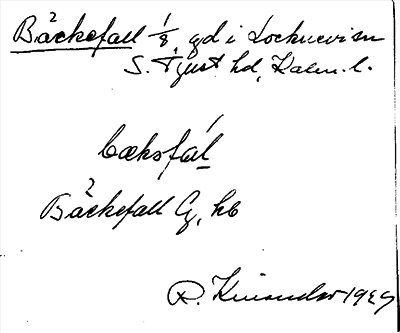 Bäckefall 1/8, gd i Locknevi sn
S. Tjust hd, Kalm. l.
bæksfál
Bäckefall G, kb
R. Kinander 1929